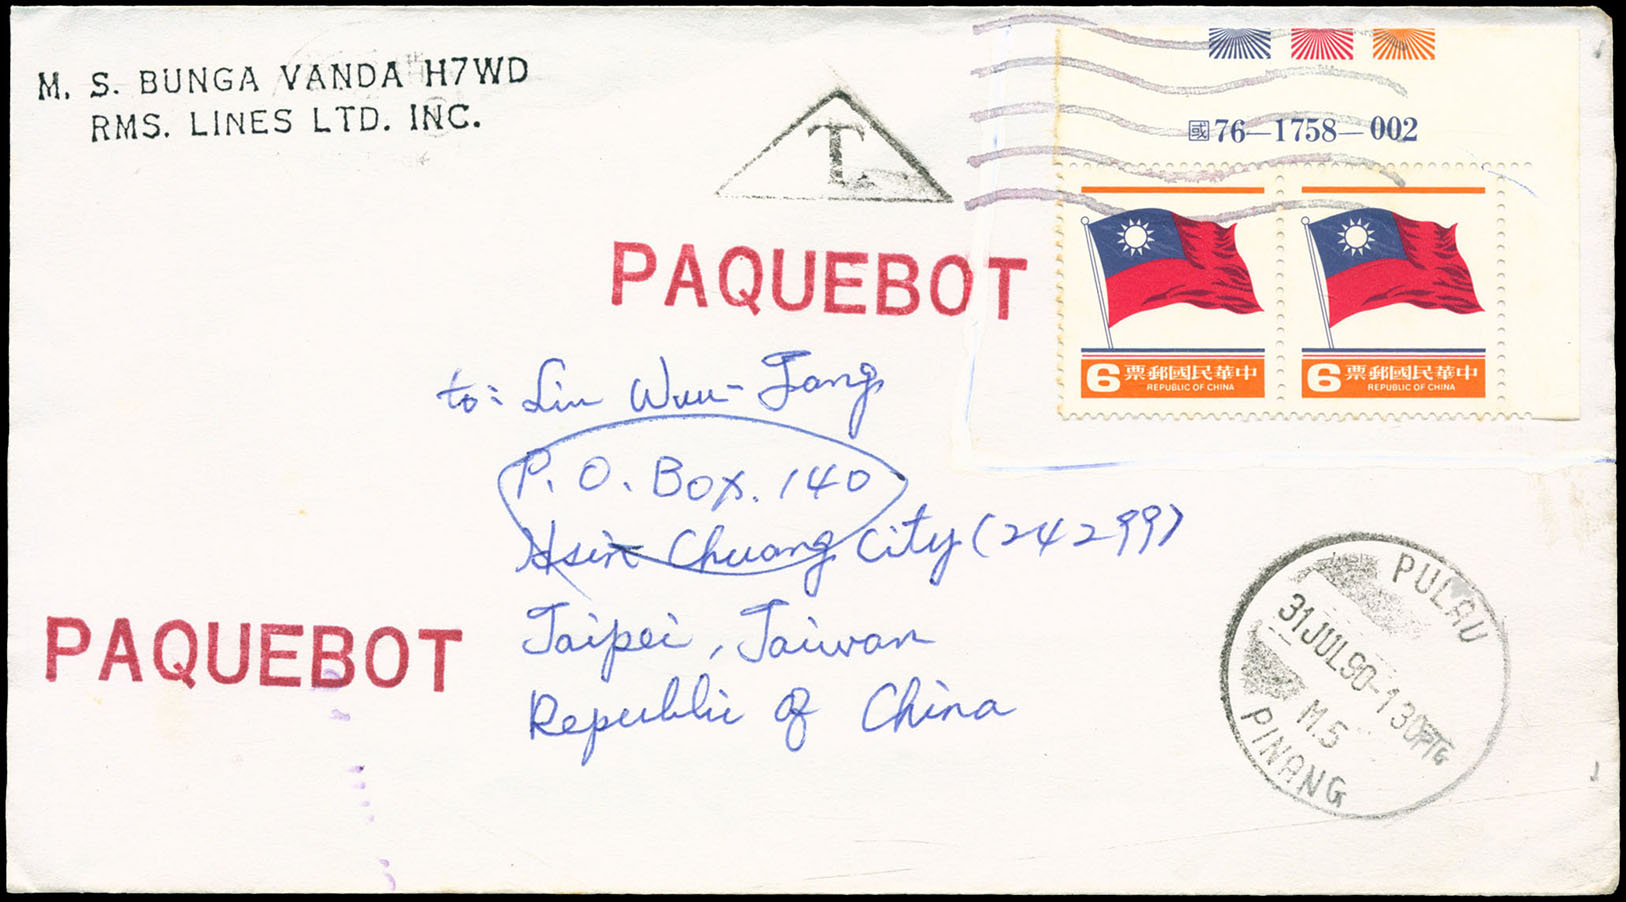 M. S. BUNGA VANDA H7WD
RMS. LINES LTD. INC.
T
國76-1758-002
PAQUEBOT
6 票郵國民華中
REPUBLIC OF CHINA
6 票郵國民華中
REPUBLIC OF CHINA
to: Lin Wuu-Jang
P. O. Box. 140
Hsin Chuang City (24299)
Taipei, Taiwan
Republic of China
PAQUEBOT
PULAU
31JUL90-130PTG
M5
PINANG